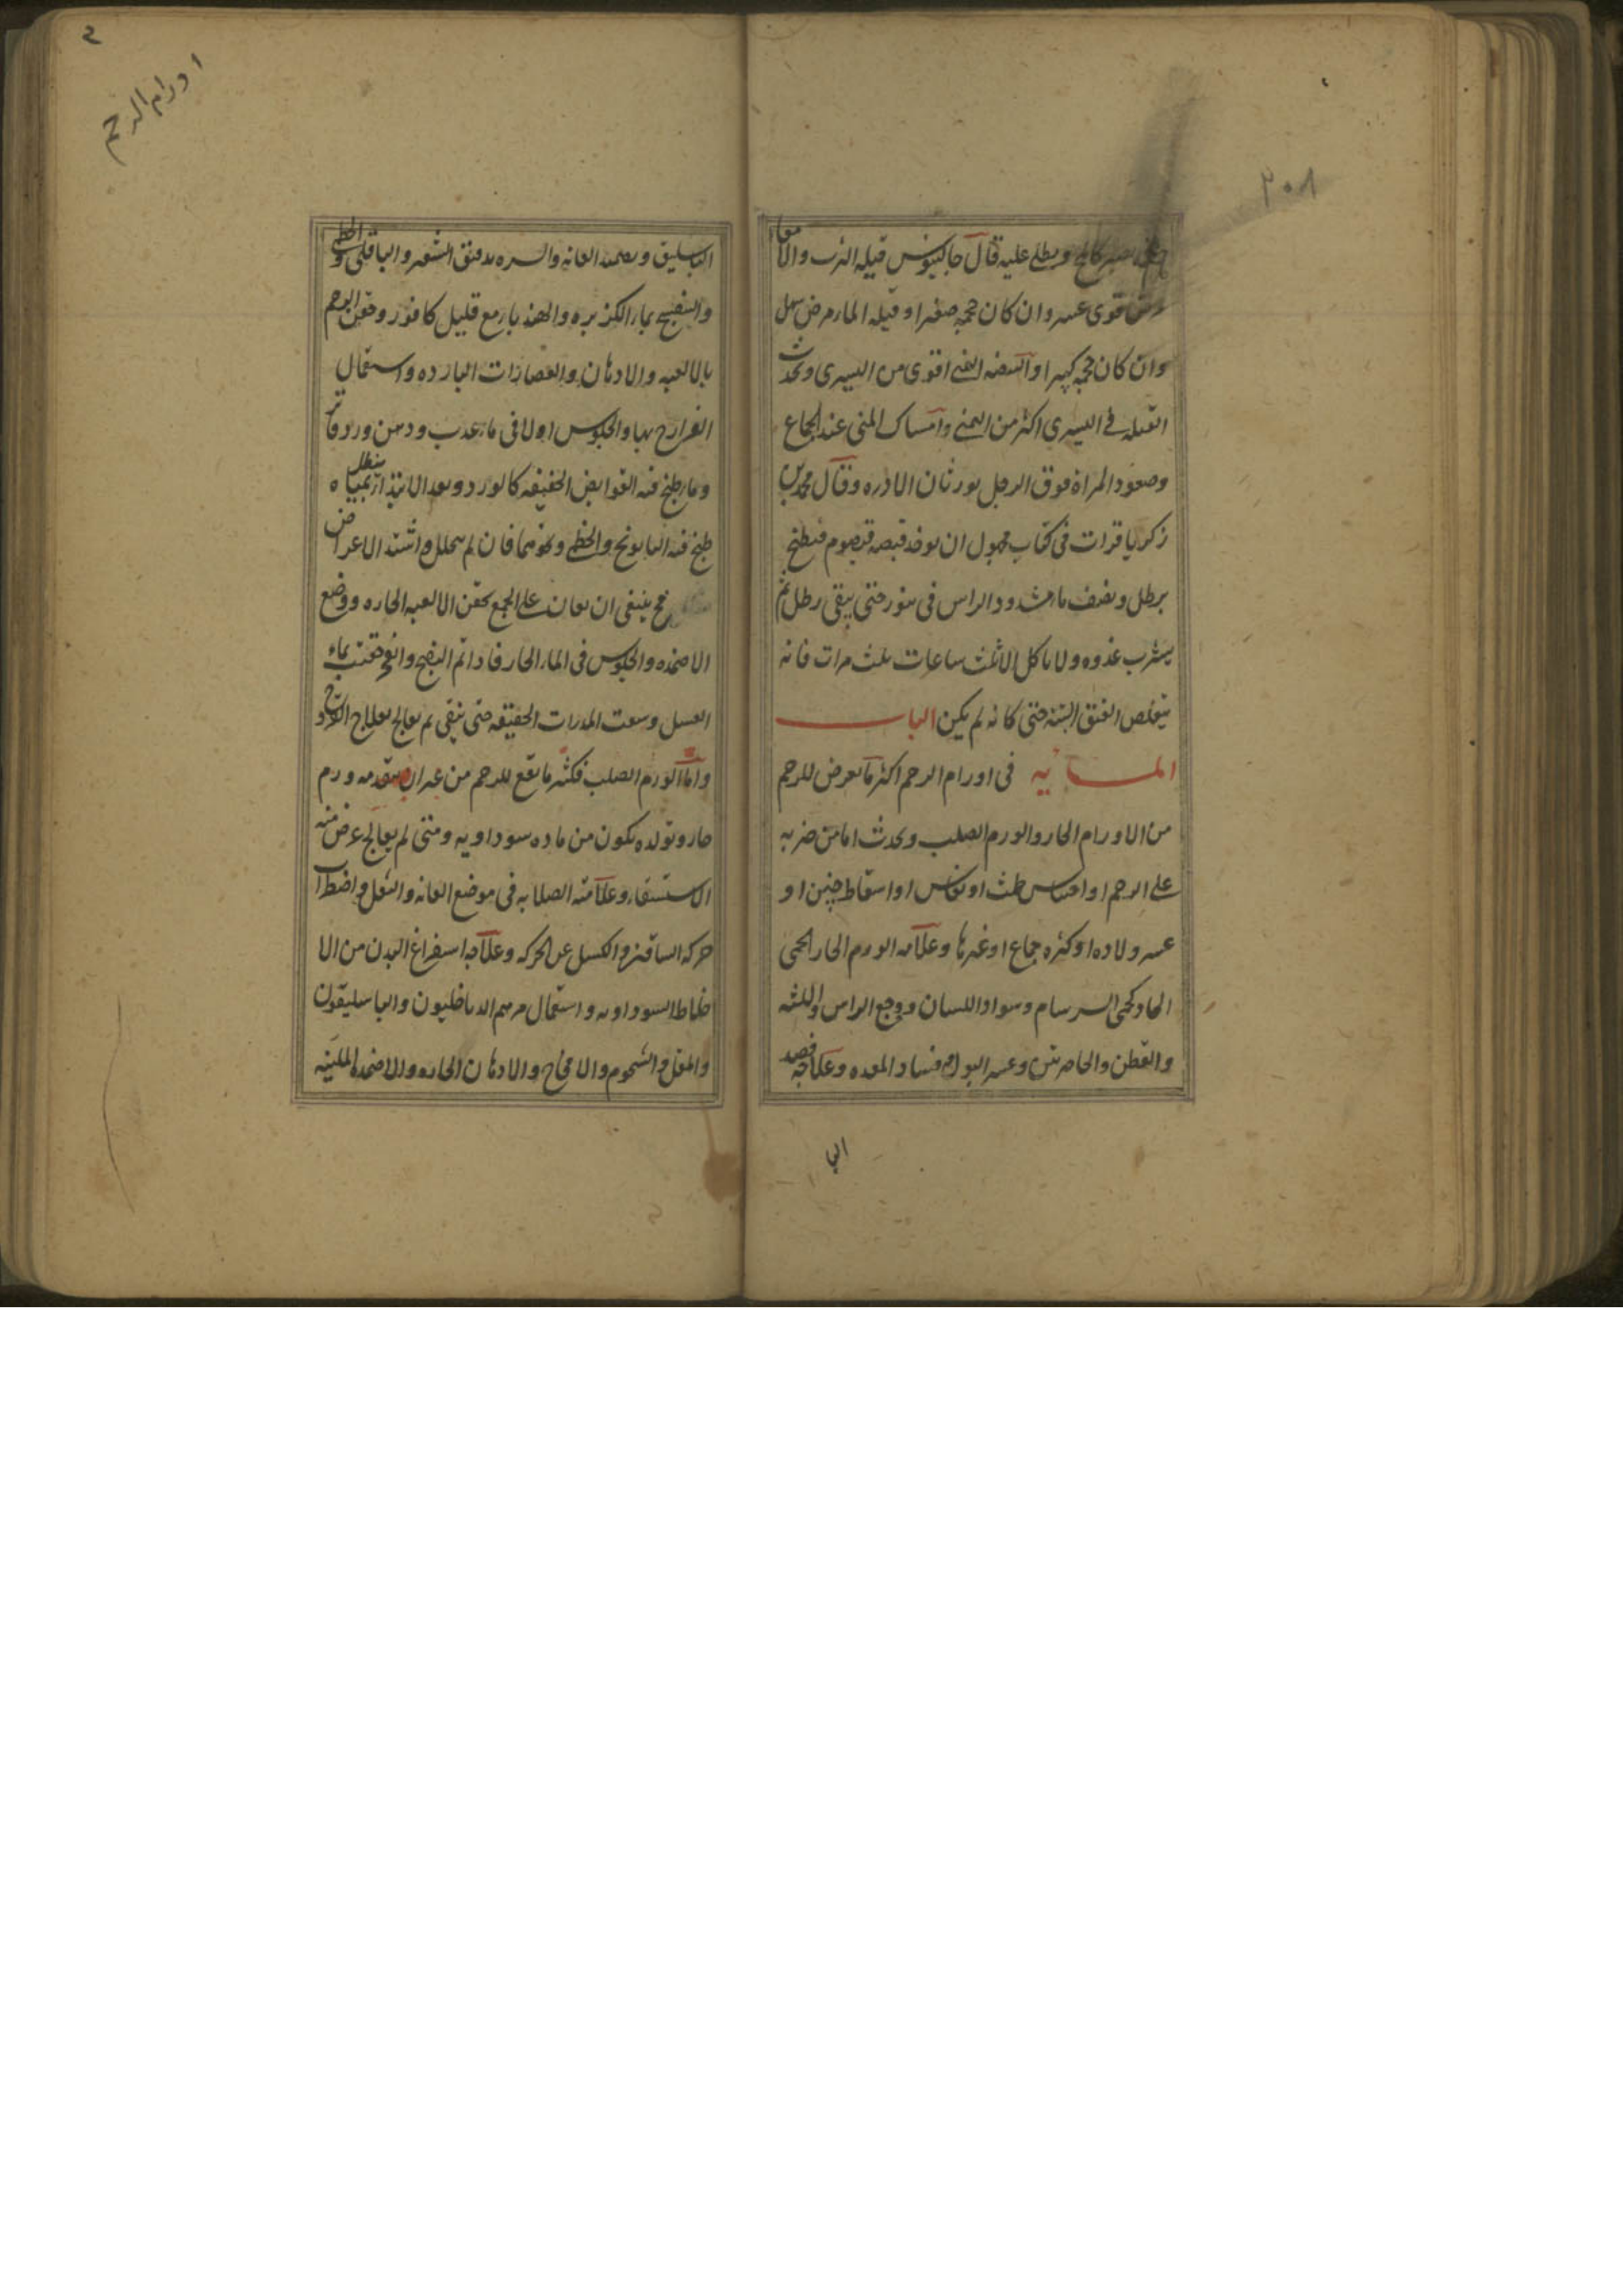 ٢٠٨
ويطلى عليه قال جالينوس قيله الثرب والامعا
قوى عسر وان كان حجمه صغيرا وقيله الماء مرض سهل
وان كان حجمه كبيرا والبيضه اليمنى اقوى من اليسرى وتحدث
القيله فى اليسرى اكثر من اليمنى وامساك المنى عند الجماع
وصعود المراة فوق الرجل يورثان الادره وقال محمد بن
زكريا قرات فى كتاب مجهول ان يوخذ قبضه قيصوم فيطبخ
برطل ونصف ماء مشدود الراس فى تنور حتى يبقى رطل ثم
يشرب غدوه ولا ياكل الا ثلث ساعات ثلث مرات فانه
يتقلص الفتق البتة حتى كانه لم يكن الباب
فى اورام الرحم اكثر ما يعرض للرحم
من الاورام الحار والورم الصلب ويحدث اما من ضربه
على الرحم او احتباس طمث او نفاس او اسقاط جنين او
عسر ولاده او كثره جماع او غيرها وعلامه الورم الحار الحمى
الحاد كحمى السرسام وسواد اللسان ووجع الراس واللثه
والقطن والخاصرتين وعسر البول وفساد المعده وعلاجه فصد
البا
اورام الرحم
الباسليق ويضمد العانه والسره بدقيق الشعير والباقلى والخطمى
والبنفسج بماء الكزبره والهندباء مع قليل كافور وحقن الرحم
بالالعبه والادهان والعصارات البارده واستعمال
الفرازج بها والجلوس اولا فى ماء عذب ودهن ورد فاتر
وماء طبخ فيه القوابض الخفيفه كالورد وبعد الابتداء ينطل بمياه
طبخ فيه البابونج والخطمى ونحوهما فان لم يتحلل واشتد الاعراض
ينبغى ان يعان على الجمع بحقن الالعبه الحاره ووضع
الاضمده والجلوس فى الماء الحار فاذا تم النضج وانفجر حقنت بماء
العسل وسقيت المدرات الخفيفه حتى ينقى ثم يعالج بعلاج القروح
واما الورم الصلب فكثيرا ما يقع للرحم من غير ان يتقدمه ورم
حار وتولده يكون من ماده سوداويه ومتى لم يعالج عرض منه
الاستسقاء وعلامته الصلابه فى موضع العانه والثقل واضطراب
حركه الساقين والكسل عن الحركه وعلاجه استفراغ البدن من الا
خلاط السوداويه واستعمال مرهم الدياخليون والباسليقون
والمقل والشحوم والامخاخ والادهان الحاره والاضمده الملينه